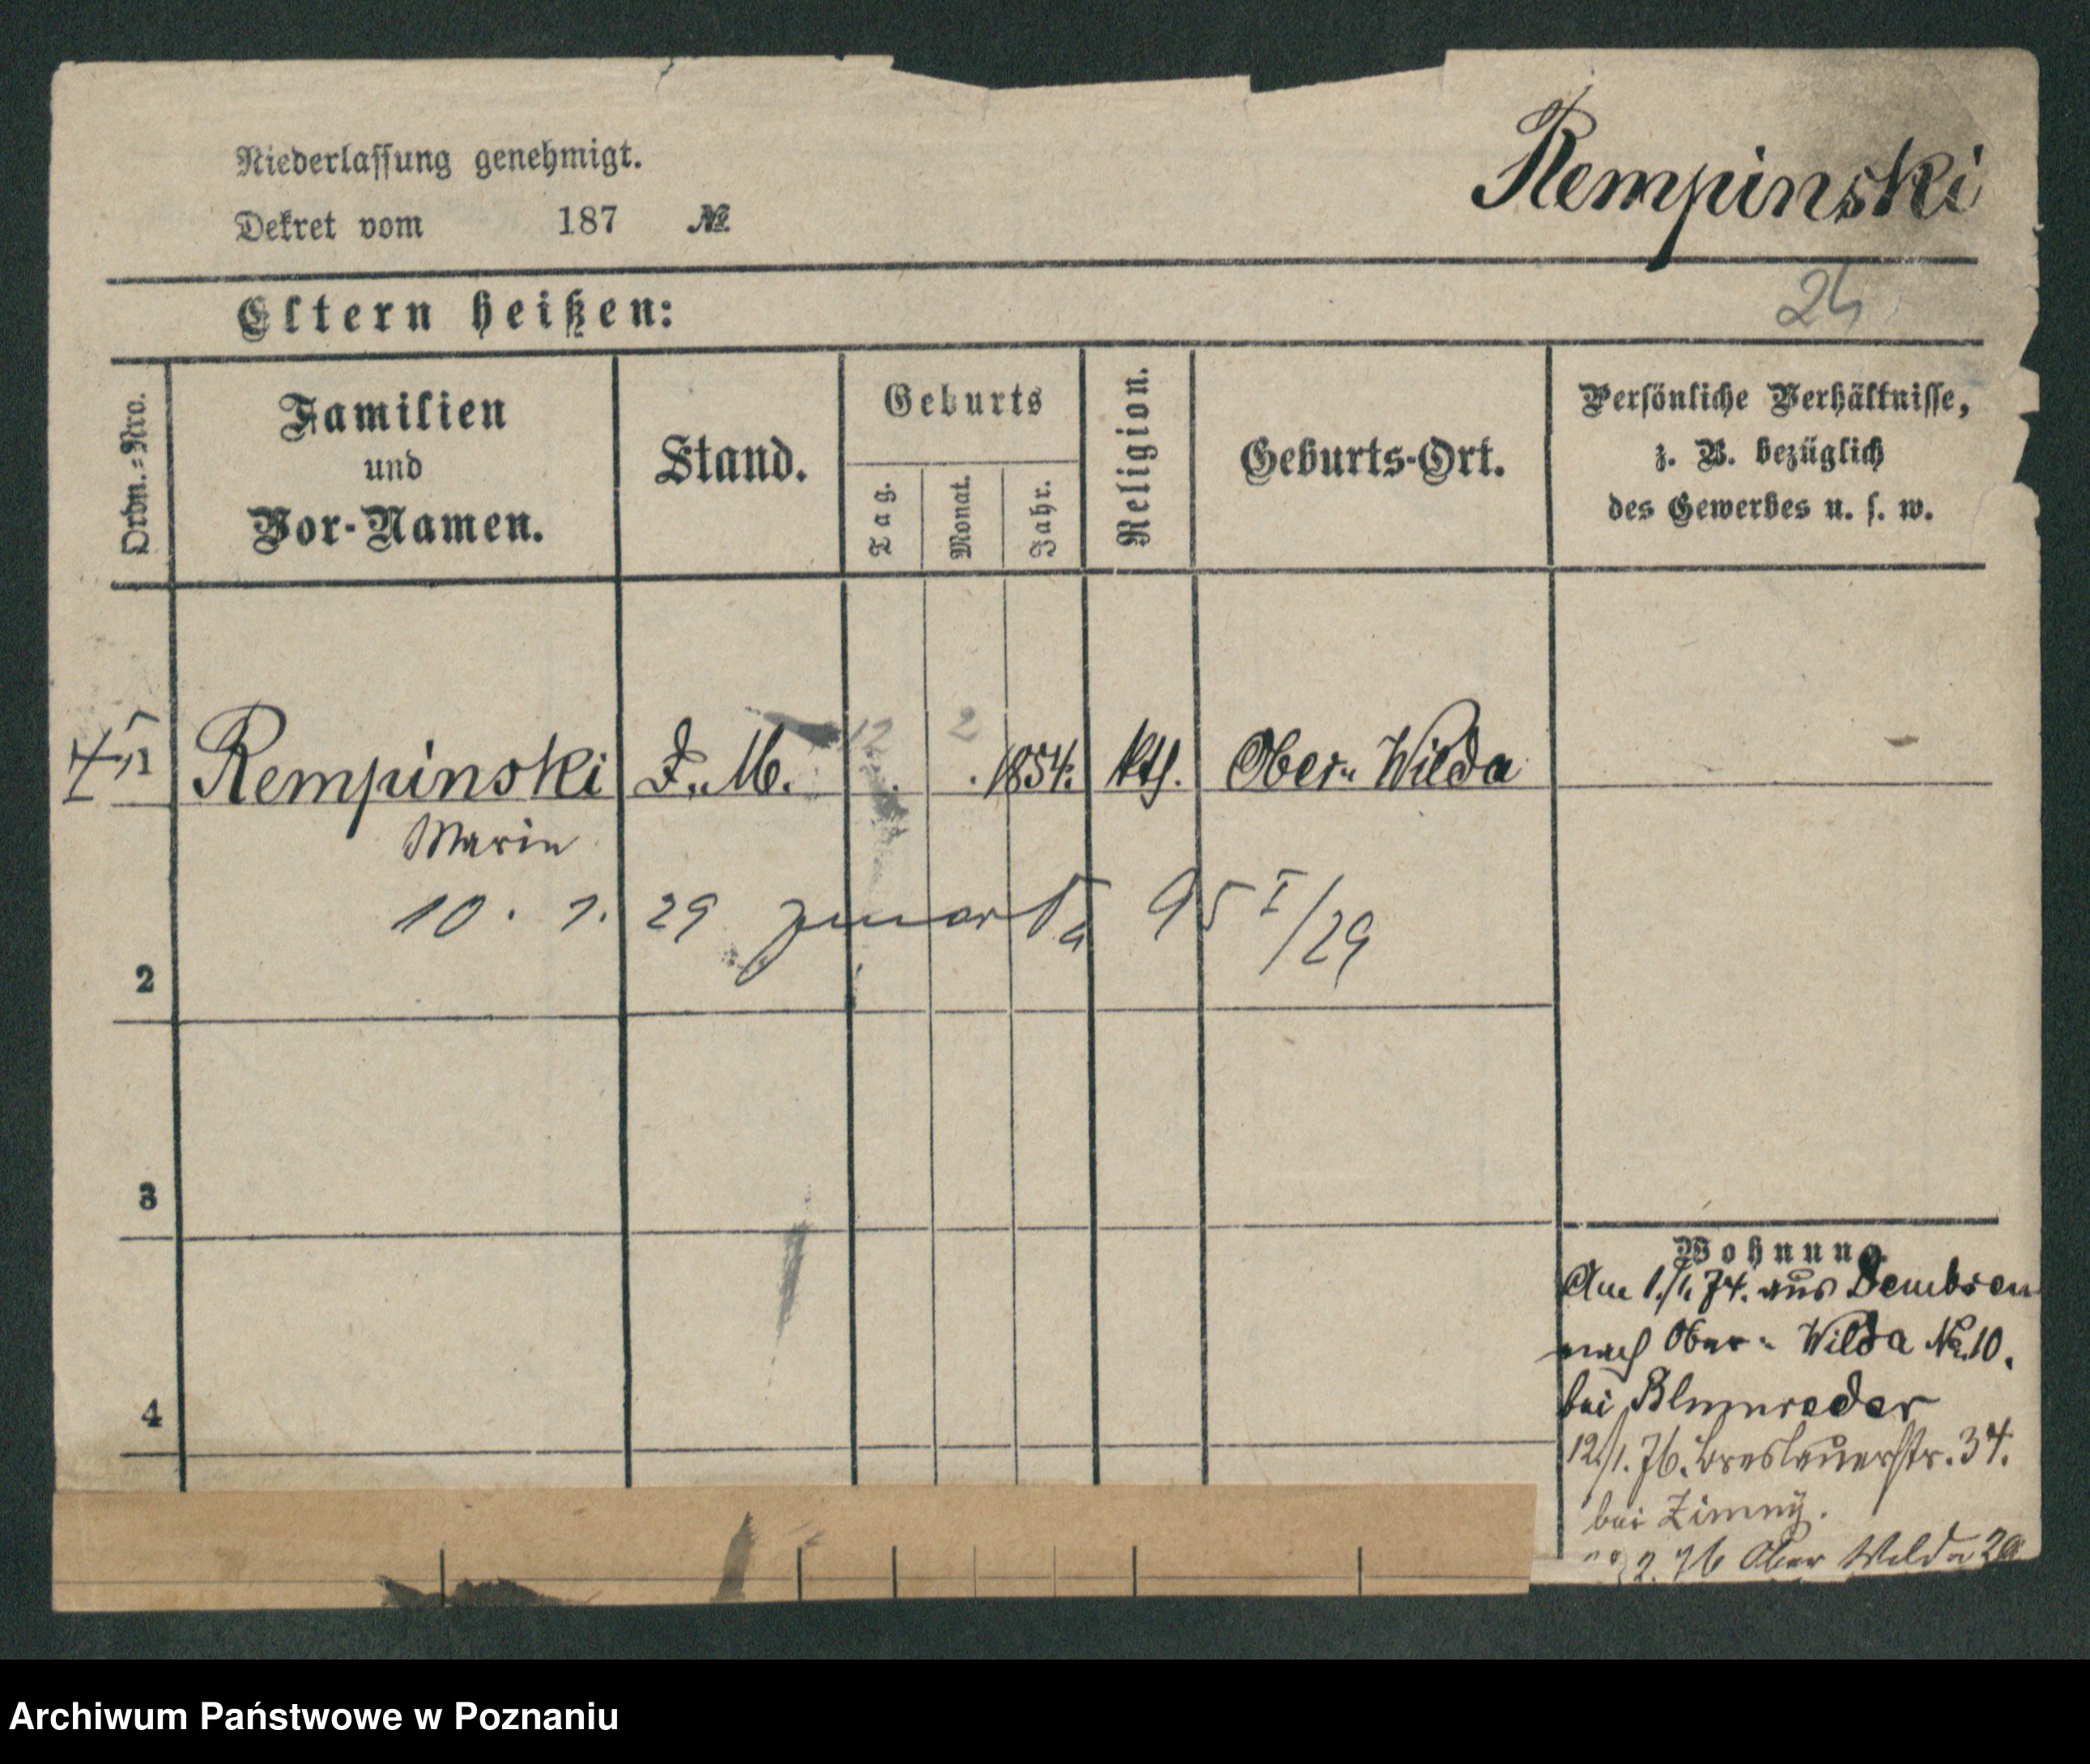 Niederlassung genehmigt.
Dekret vom 187 №
Rempinski
24
Eltern heißen:
Ordn.=Nro.
Familien
und
Vor-Namen.
Stand.
Geburts
Tag.
Monat.
Jahr.
Religion.
Geburts-Ort.
Persönliche Verhältnisse,
z. B. bezüglich
des Gewerbes u. s. w.
Rempinski D. M. 12. 2. 1854. kth. Ober-Wilda
Marie
10. 1. 29 zmarła 95 I/29
2
3
4
Wohnung.
Am 1./1. 74. aus Dembsen
nach Ober-Wilda No. 10.
bei Blumreder
12./1. 76. Breslauerstr. 34.
bei Zimny.
2. 76 Ober Wilda
Archiwum Państwowe w Poznaniu